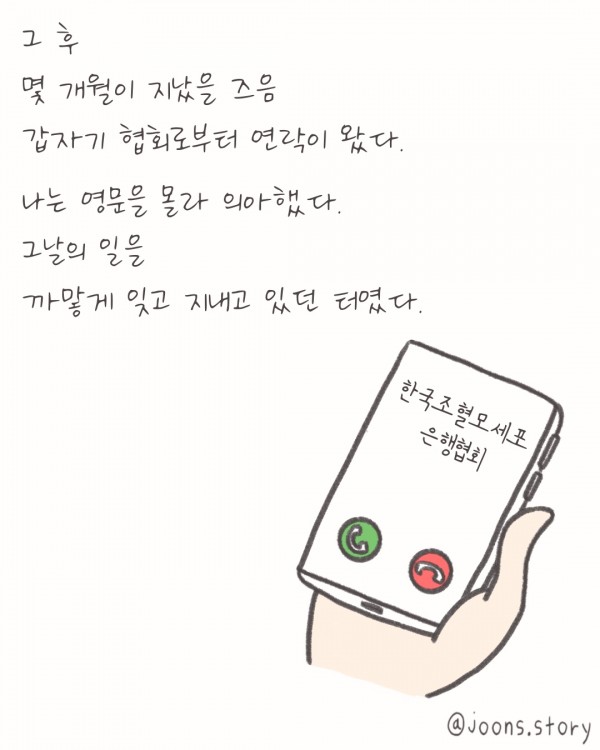 그 후
몇 개월이 지났을 즈음
갑자기 협회로부터 연락이 왔다.
나는 영문을 몰라 의아했다.
그날의 일을
까맣게 잊고 지내고 있던 터였다.
한국조혈모세포
은행협회
@joons.story